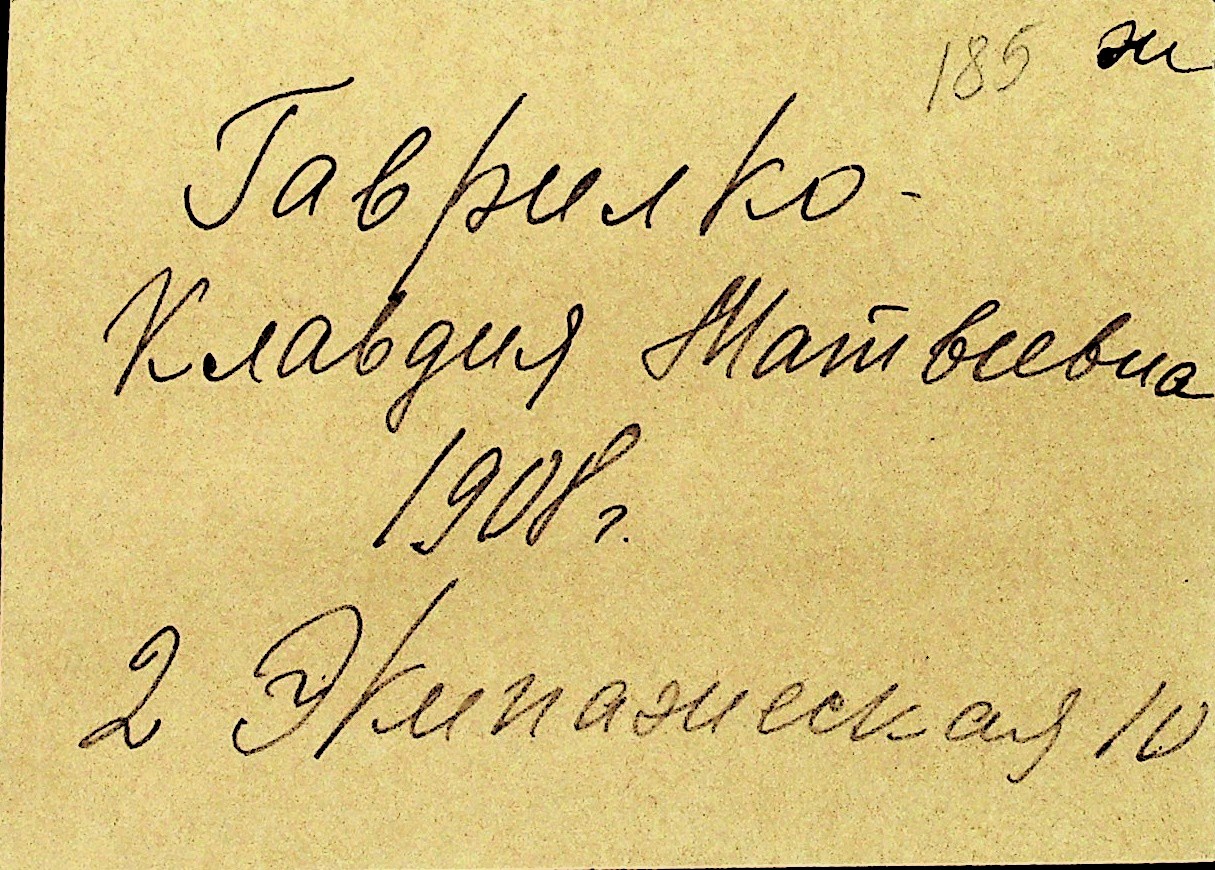 185 ж
Гаврилко-
Клавдия Матвеевна
1908 г.
2 Экипажеская 10